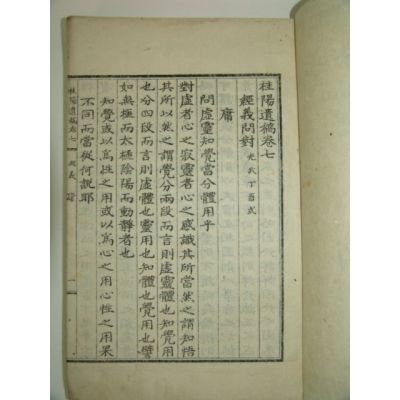 桂陽遺稿卷七
經義問對 光武丁酉式
庸
問虛靈知覺當分體用乎
對虛者心之寂靈者心之感識其所當然之謂知悟
其所以然之謂覺分兩段而言則虛靈體也知覺用
也分四段而言則虛體也靈用也知體也覺用也譬
如無極而太極陰陽而動靜者也
知覺或以爲性之用或以爲心之用心性之用果
不同而當從何說耶
桂陽遺稿卷七
一